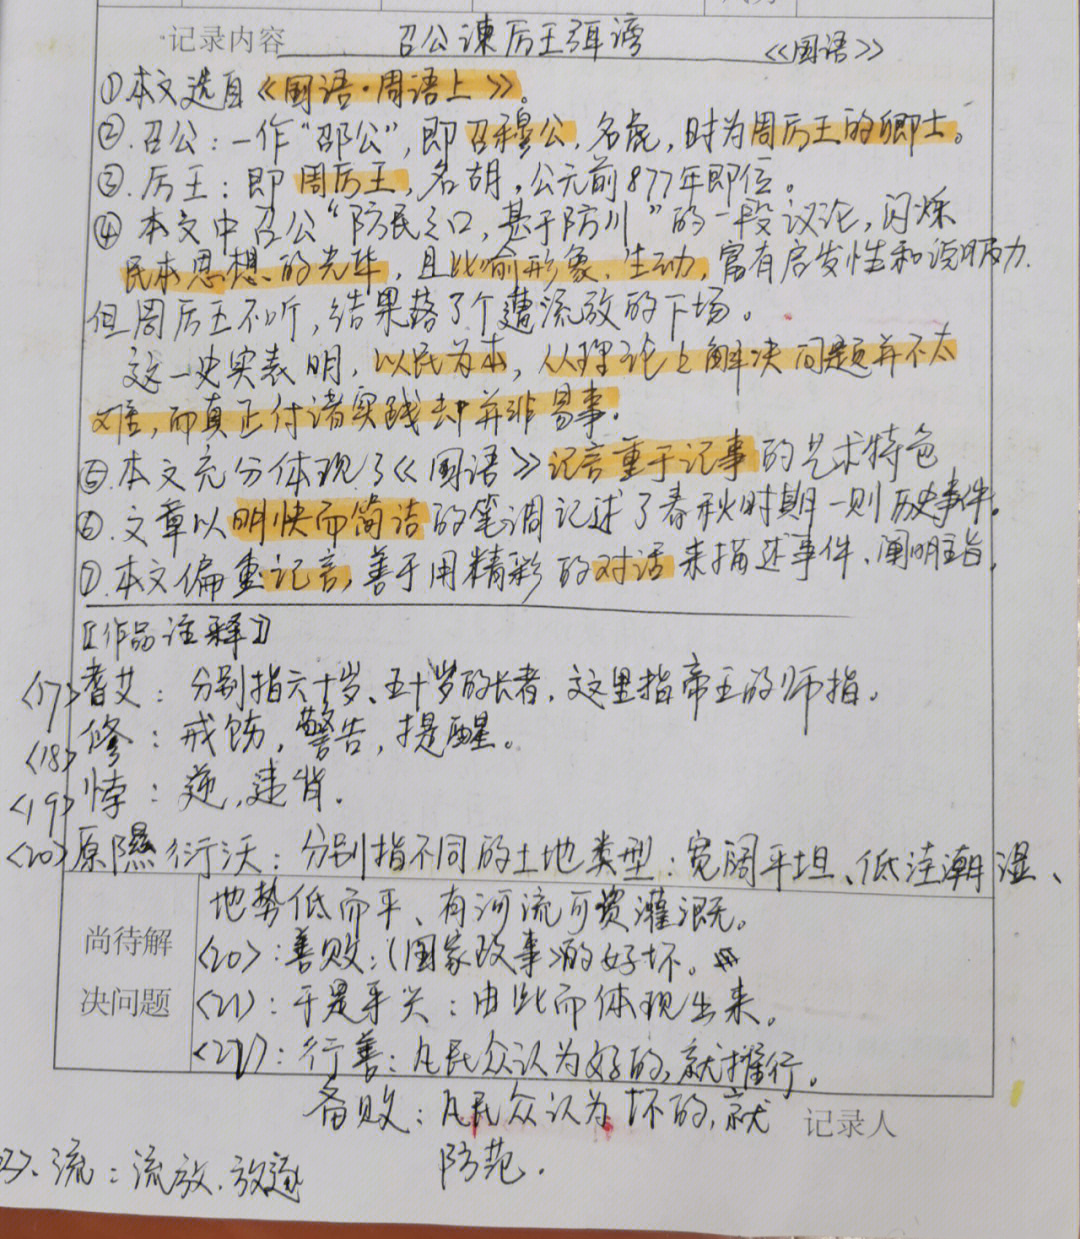 记录内容 召公谏厉王弭谤 《国语》
①本文选自《国语·周语上》。
②.召公:一作“邵公”,即召穆公,名虎,时为周厉王的卿士。
③.厉王:即周厉王,名胡,公元前877年即位。
④ 本文中召公“防民之口,甚于防川”的一段议论,闪烁
民本思想的光华,且比喻形象、生动,富有启发性和说服力.
但周厉王不听,结果落了个遭流放的下场。
这一史实表明,以民为本,从理论上解决问题并不太
难,而真正付诸实践却并非易事.
⑤.本文充分体现了《国语》记言重于记事的艺术特色
⑥.文章以明快而简洁的笔调记述了春秋时期一则历史事件。
⑦.本文偏重记言,善于用精彩的对话来描述事件、阐明主旨.
【作品注释】
<17>耆艾:分别指六十岁、五十岁的长者,这里指帝王的师指.
<18>修:戒饬,警告,提醒。
<19>悖:逆,违背.
<20>原隰衍沃:分别指不同的土地类型:宽阔平坦、低洼潮湿、
地势低而平、有河流可资灌溉。
尚待解
决问题
<20>:善败:(国家政事)的好坏。
<21>:于是乎兴:由此而体现出来。
<22>:行善:凡民众认为好的,就推行。
备败:凡民众认为坏的,就
记录人
防范.
流:流放.放逐